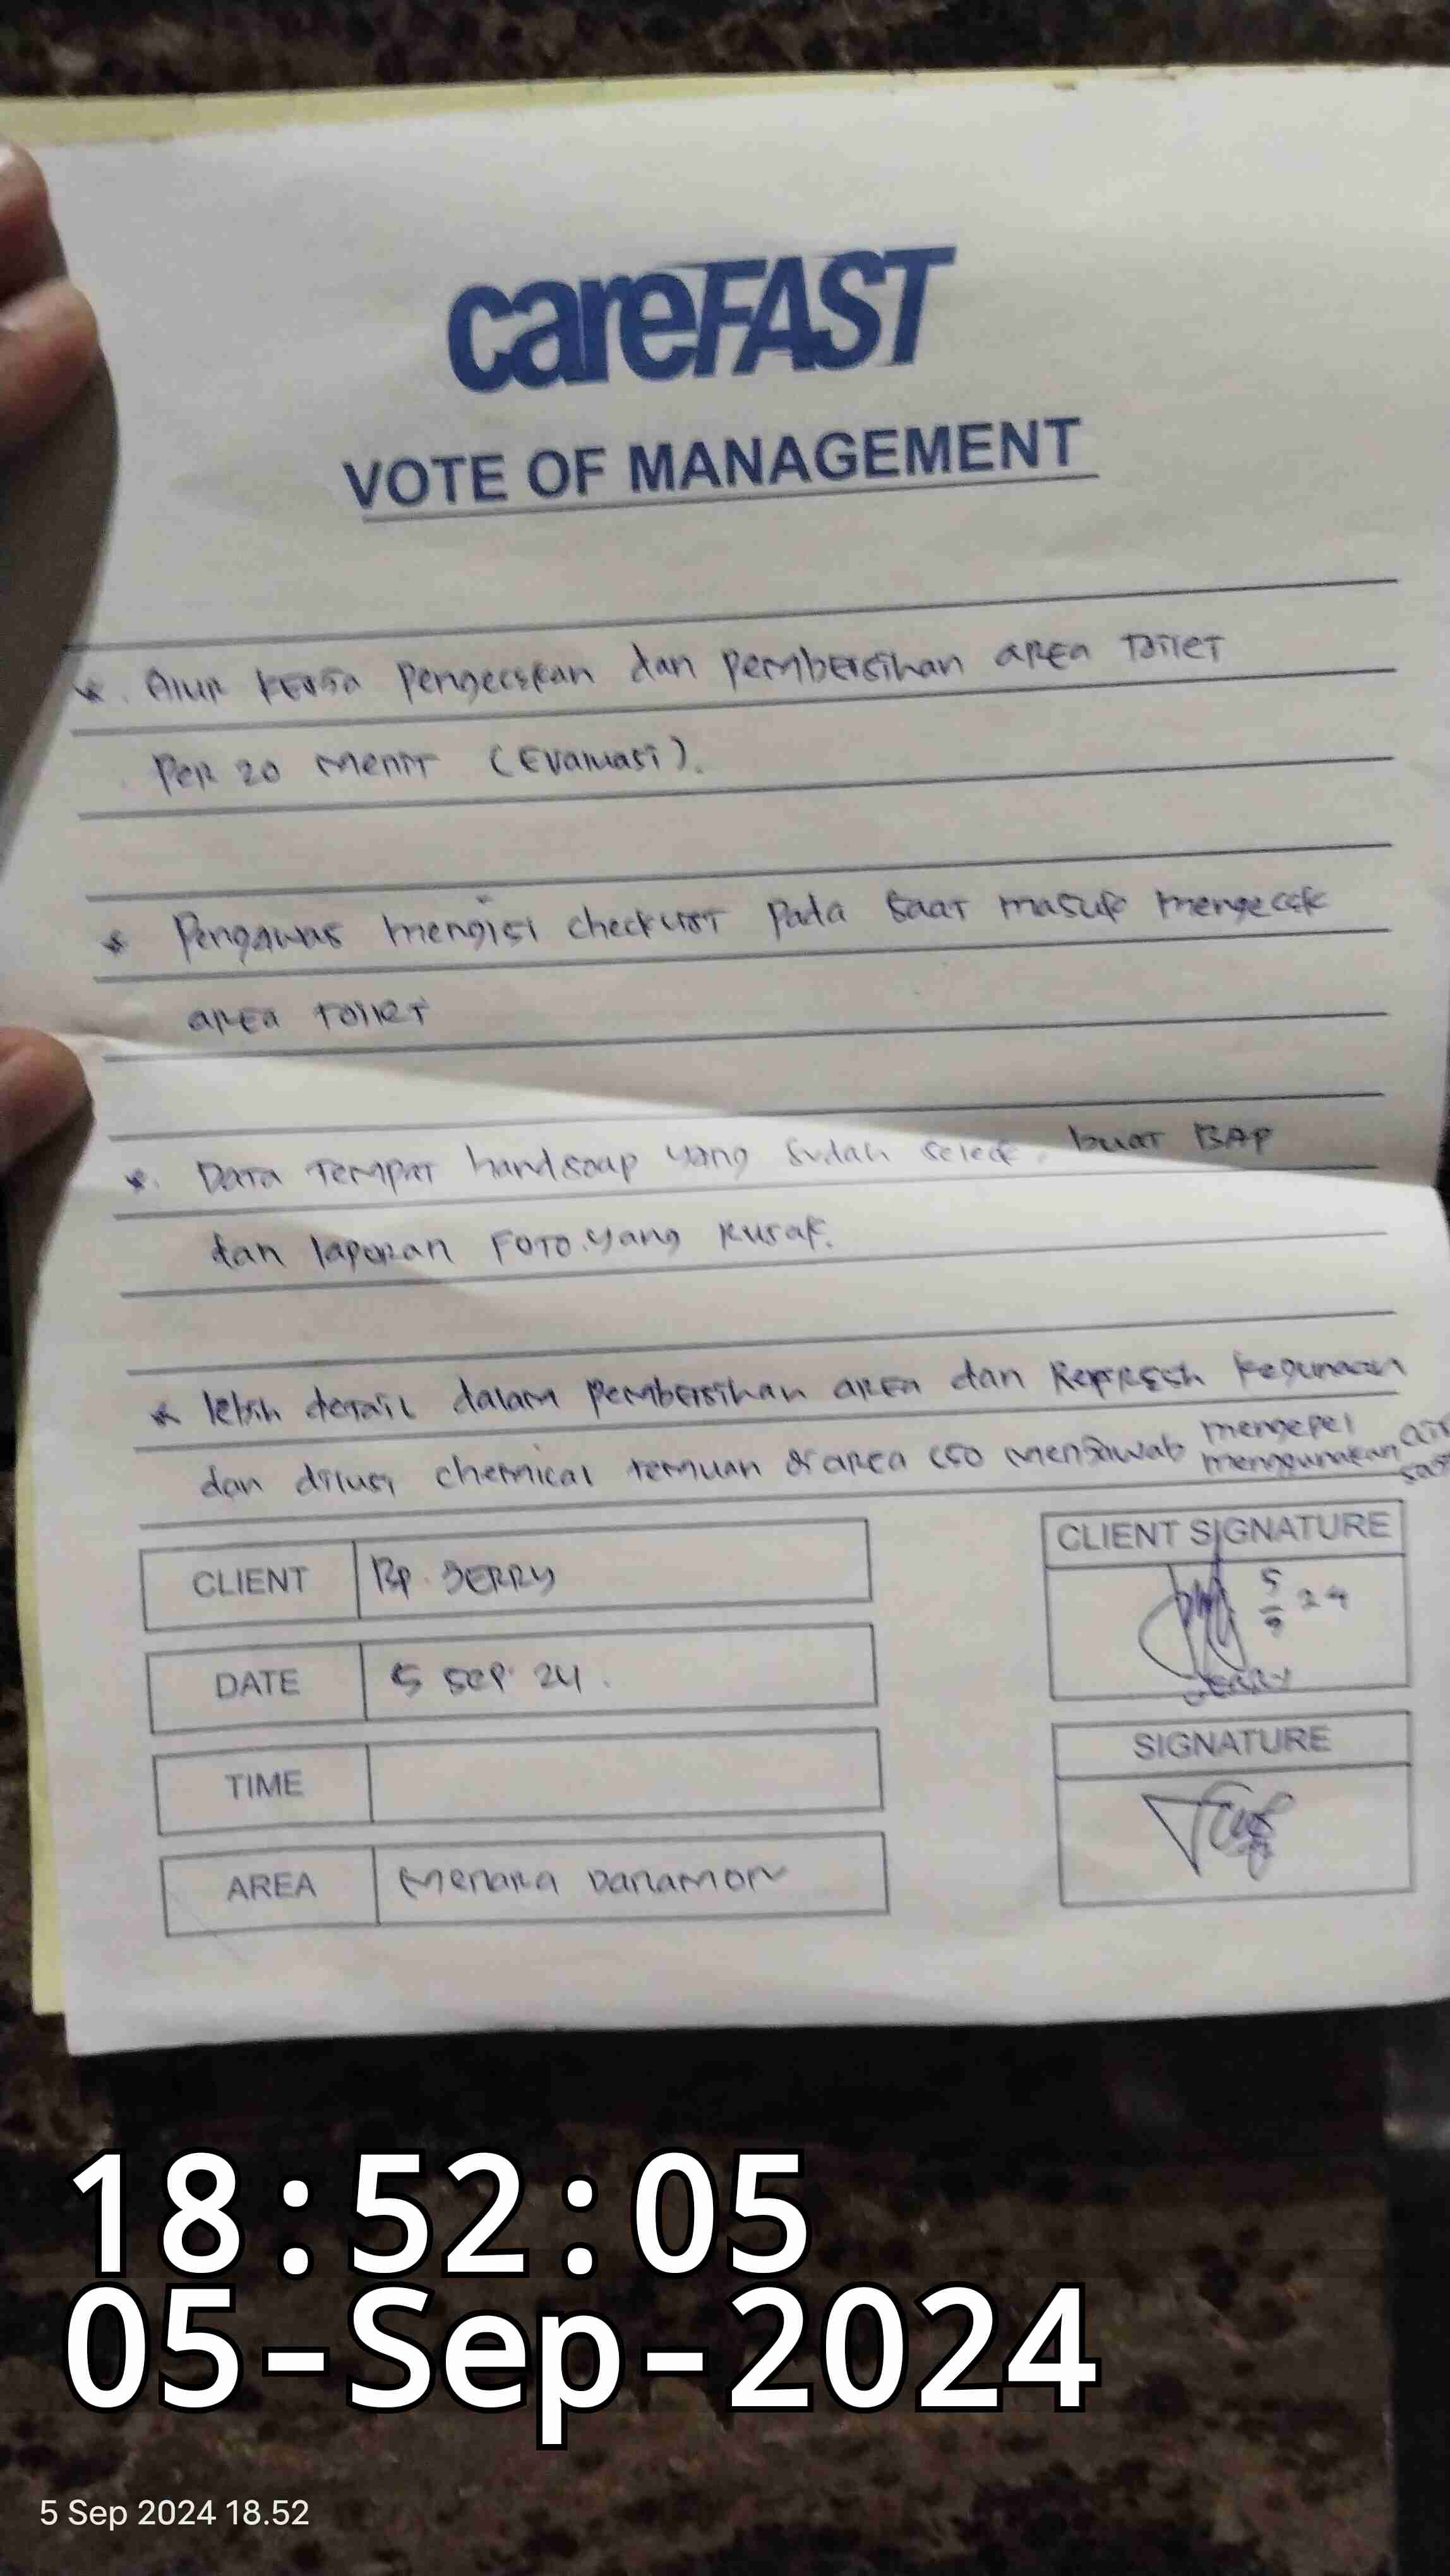 careFAST
VOTE OF MANAGEMENT
* Alur kerja Pengecekan dan Pembersihan area Toilet
Per 20 menit (Evaluasi).
* Pengawas mengisi checklist Pada Saat masuk mengecek
area Toilet
* Data Tempat handsoap yang sudah selece. buat BAP
dan laporan Foto yang Rusak.
* lebih detail dalam Pembersihan area dan Refresh kegunaan
dan dilusi chemical temuan di area CSO menjawab mengepel
mengunakan air
CLIENT Bp. JERRY
DATE 5 Sep 24.
TIME
AREA Menara Danamon
CLIENT SIGNATURE
5/9 24
JERRY
SIGNATURE
18:52:05
05-Sep-2024
5 Sep 2024 18.52